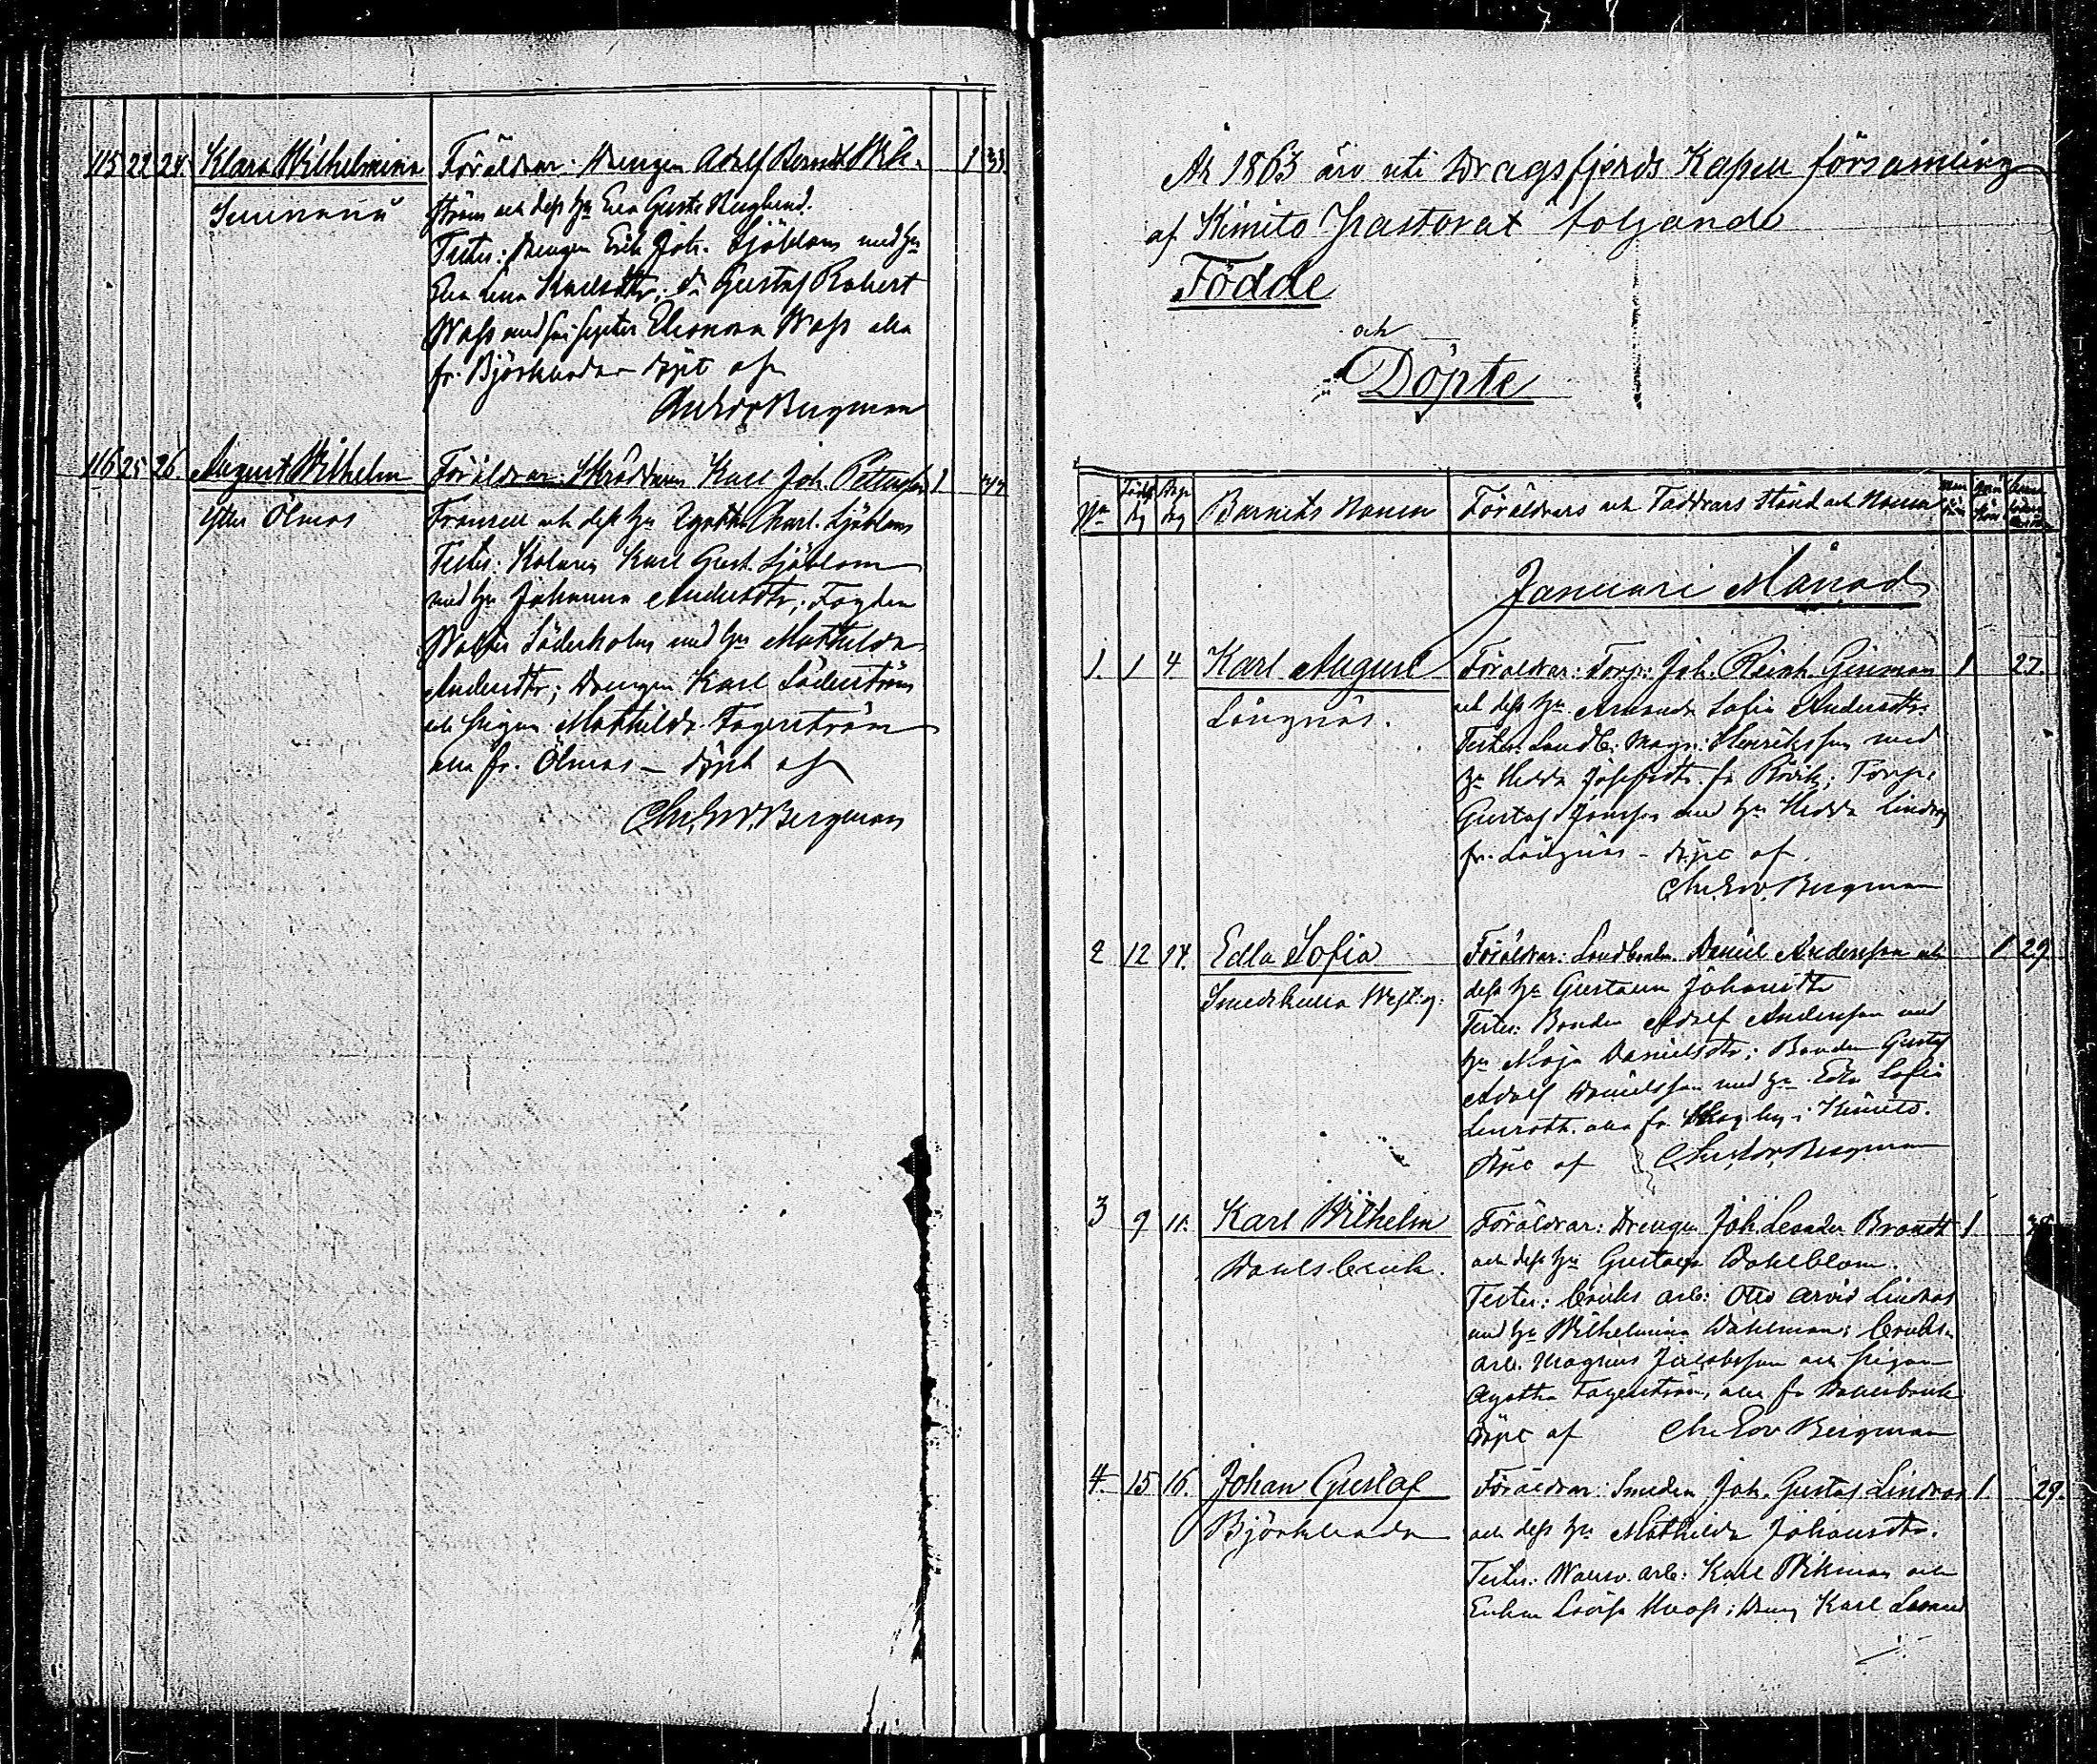 115 22 24. Klara Wilhelmina Föräldrar: Drengen Adolf Berndt Wik- 1 33.
ström och dess hu Eva Gusta Berglund.
Testes: Drengen Erik Joh. Sjöblom med hu
Eva Lena Karlsdtr; d: Gustaf Robert
Wass med syster Eleonora Wass alla
fr. Björkboda döpt af
Chr. Edv. Bergman
116 25 26. August Wilhelm Föräldrar: Skräddaren Karl Joh. Pettersson 1
Ytter Ölmos Fransell och dess hu Agatha Charl. Sjöblom
Testes: Kolaren Karl Gust. Sjöblom
med hu Johanna Andersdtr; Fogden
Walter Söderholm med hu Mathilda
Andersdtr; Drengen Karl Söderström
och pigan Mathilda Fagerström
alla fr. Ölmos – döpt af
Chr. Edv. Bergman
År 1863 äro uti Dragsfjerds Kapell församling
af Kimito Pastorat följande
Födde
och
Döpte
No Född. dag Döpt dag Barnets Namn Föräldrars och Faddrars Stånd och Namn
Januari Månad
1. 1 4 Karl August Föräldrar: Torp: Joh. Reinh. Genman 1 27.
Långnäs. och dess hu Amanda Sofia Andersdtr.
Testes: Landb: Magn: Henriksson med
hu Hedda Josefsdtr. fr Rövik; Torp:
Gustaf Jönsson med hu Hedda Lindroos
fr. Långnäs – döpt af
Chr. Edv. Bergman
2 12 14. Edla Sofia Föräldrar: Landbonden Daniel Andersson och 1 29
Smedskulla Westerg: dess hu Gustava Johansdtr
Testes: Bonden Adolf Andersson med
hu Maja Danielsdtr; Bonden Gustaf
Adolf Danielsson med hu Edla Sofia
Lenroth. alla fr. i Kimito.
döpt af Chr. Edv. Bergman
3 9 11. Karl Wilhelm Föräldrar: Drengen Joh. Leander Brandt 1
Dahlsbruk. och dess hu Gustava Dahlblom.
Testes: bruks arb: Otto Arvid Lindroos
med hu Wilhelmina Dahlman; bruks-
arb. Magnus Jacobsson och pigan
Agatha Fagerström, alla fr Dahlsbruk
döpt af Chr Edv Bergman
4. 15 16. Johan Gustaf Föräldrar: Smeden Joh. Gustaf Lindroos 1 29.
Björkboda och dess hu Mathilda Johansdtr.
Testes: Manuf. arb: Karl Wikman och
Enkan Lovisa Wass; Dreng Karl Leand